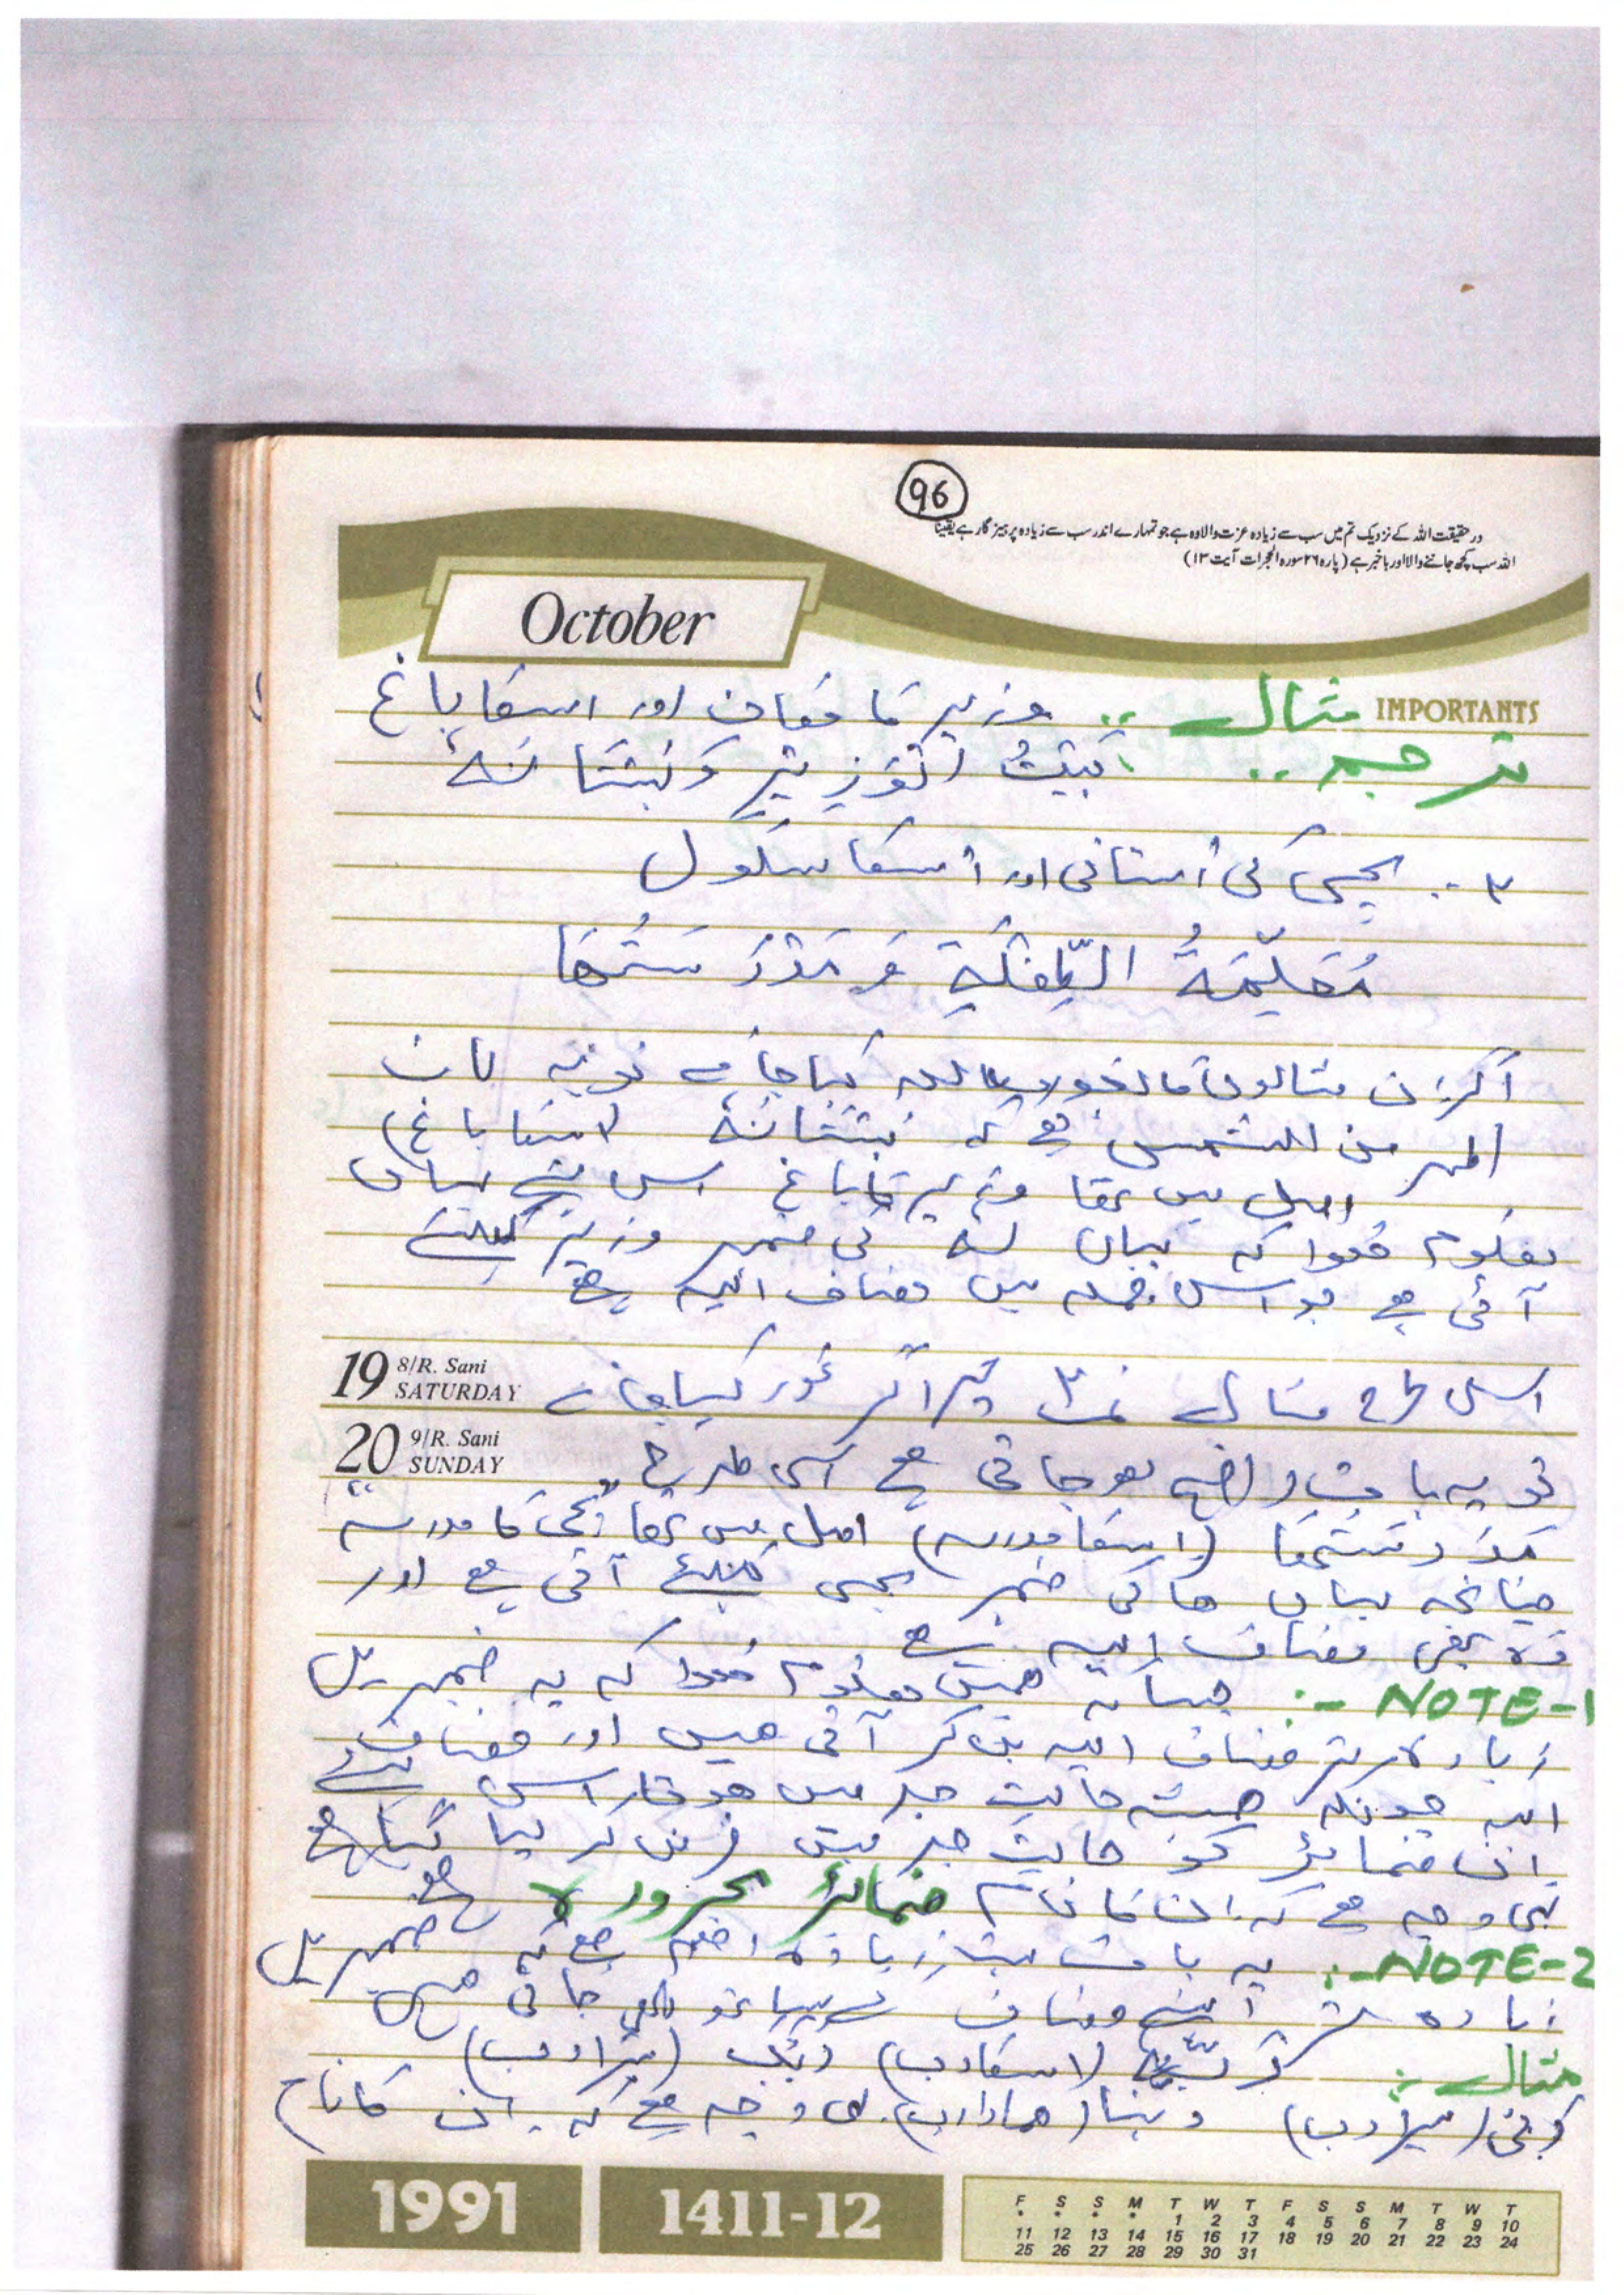 96
در حقیقت اللہ کے نزدیک تم میں سب سے زیادہ عزت والا وہ ہے جو تمہارے اندر سب سے زیادہ پرہیز گار ہے یقیناً
اللہ سب کچھ جاننے والا اور باخبر ہے (پارہ ۲۶ سورہ الحجرات آیت ۱۳)
October
IMPORTANTS
مثال :. وزیر کا مکان اور اسکا باغ
ترجمہ :. بَیْتُ الْوَزِیْرِ وَبُسْتَانُهُ
۳ :. بچی کی اُستانی اور اُسکا سکول
مُعَلِّمَةُ الطِّفْلَةِ وَ مَدْرَسَتُهَا
اگر ان مثالوں کا بغور مطالعہ کیا جائے تو یہ بات
اظہر من الشمس ہے کہ بُسْتَانُهُ (اسکا باغ)
اصل میں تھا وزیر کا باغ اس لئے یہاں
معلوم ہوا کہ یہاں کی ضمیر وزیر کیلئے
آئی ہے جو اس جملہ میں مضاف الیہ ہے
19 8/R. Sani SATURDAY
اسی طرح مثال نمبر ۳ پر اگر غور کیا جائے
20 9/R. Sani SUNDAY
تو یہ بات واضح ہو جاتی ہے اسی طرح
مَدْرَسَتُهَا (اسکا مدرسہ) اصل میں تھا بچی کا مدرسہ
چنانچہ یہاں ھا کی ضمیر بچی کیلئے آئی ہے اور
وہ بھی مضاف الیہ ہے
NOTE-1 :- جیسا کہ ہمیں معلوم ہوا کہ یہ ضمیریں
زیادہ تر مضاف الیہ بن کر آتی ہیں اور مضاف
الیہ چونکہ ہمیشہ حالت جر میں ہوتا اس لئے
ان ضمائر کو حالت جر میں فرض کر لیا گیا ہے
یہی وجہ ہے کہ ان کا نام ضمائر مجرورہ ہے
NOTE-2 :- یہ بات زیادہ اہم ہے کہ ضمیریں
زیادہ تر اپنے مضاف کے ساتھ لکھی جاتی ہیں
مثال :- رَبُّهُ (اسکا رب) رَبُّكَ (تیرا رب)
رَبِّی (میرا رب) رَبُّنَا (ہمارا رب) یہی وجہ ہے کہ ان کا نام
1991
1411-12
F S S M T W T F S S M T W T
* * * * 1 2 3 4 5 6 7 8 9 10
11 12 13 14 15 16 17 18 19 20 21 22 23 24
25 26 27 28 29 30 31